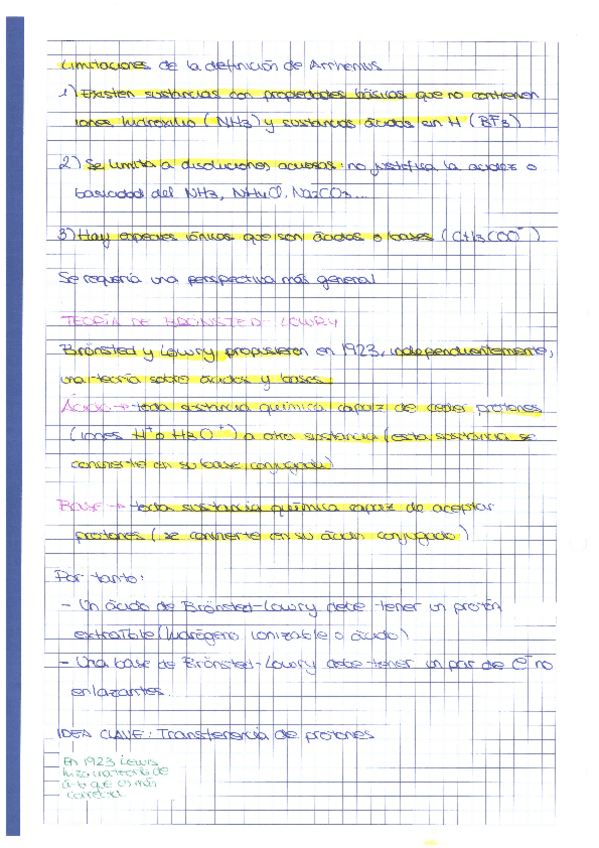 Limitaciones de la definición de Arrhenius
1) Existen sustancias con propiedades básicas que no contienen
iones hidroxilio (NH3) y sustancias ácidas sin H (BF3)
2) Se limita a disoluciones acuosas: no justifica la acidez o
basicidad del NH3, NH4Cl, Na2CO3...
3) Hay especies iónicas que son ácidos o bases (CH3COO⁻)
Se requería una perspectiva más general
TEORÍA DE BRÖNSTED-LOWRY
Brönsted y Lowry propusieron en 1923, independientemente,
una teoría sobre ácidos y bases.
Ácido → toda sustancia química capaz de ceder protones
(iones H⁺ o H3O⁺) a otra sustancia (esta sustancia se
convierte en su base conjugada)
Base → toda sustancia química capaz de aceptar
protones (se convierte en su ácido conjugado)
Por tanto:
- Un ácido de Brönsted-Lowry debe tener un protón
extraíble (hidrógeno ionizable o ácido)
- Una base de Brönsted-Lowry debe tener un par de e⁻ no
enlazantes.
IDEA CLAVE: Transferencia de protones
En 1923 Lewis
hizo una teoría de
a-b que es más
correcta